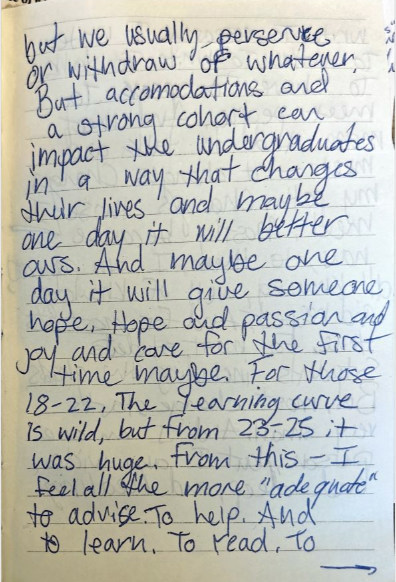 but we usually perservere
or withdraw or whatever.
But accomodations and
a strong cohort can
impact the undergraduates
in a way that changes
their lives and maybe
one day it will better
ours. And maybe one
day it will give someone
hope. Hope and passion and
joy and care for the first
time maybe. For those
18-22, The learning curve
is wild, but from 23-25 it
was huge. From this - I
feel all the more "adequate"
to advise. To help. And
to learn. To read. To